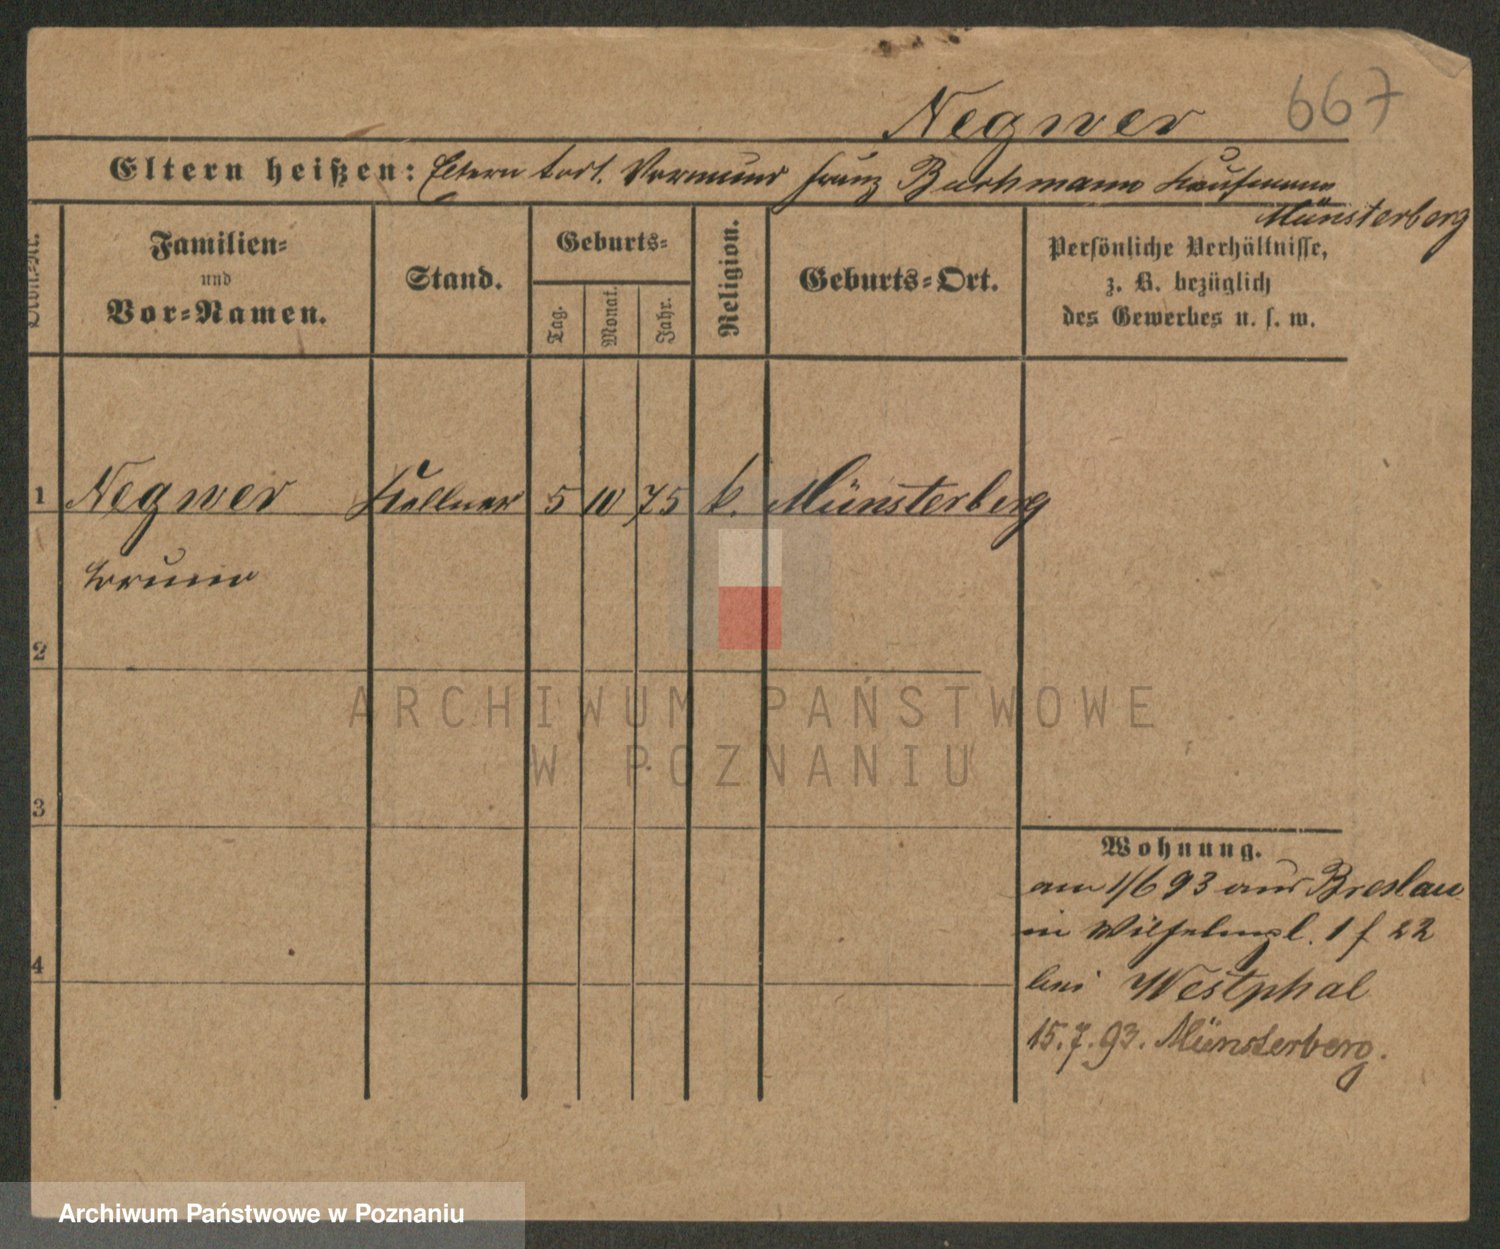 Negwer 667
Eltern heißen: Eltern todt. Vormund Franz Buchmann Kaufmann
Münsterberg
Familien-
und
Vor-Namen.
Stand.
Geburts-
Tag.
Monat.
Jahr.
Religion.
Geburts-Ort.
Persönliche Verhältnisse,
z. B. bezüglich
des Gewerbes u. s. w.
1 Negwer Kellner 5 10 75 k. Münsterberg
Bruno
2
3
4
Wohnung.
am 1/6 93 aus Breslau
in Wilhelmspl. 1 f 22
bei Westphal
15.7.93. Münsterberg.
ARCHIWUM PAŃSTWOWE
W POZNANIU
Archiwum Państwowe w Poznaniu